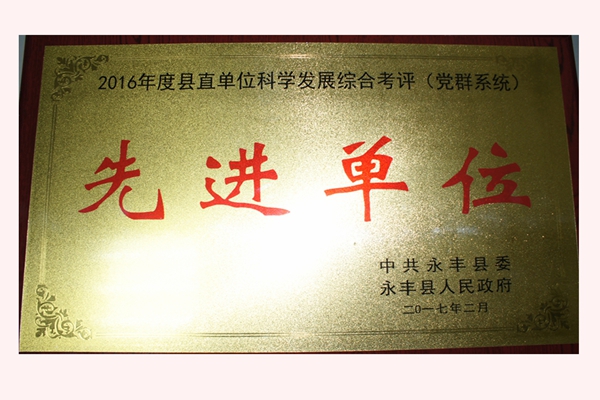 2016年度县直单位科学发展综合考评（党群系统）
先进单位
中共永丰县委
永丰县人民政府
二〇一七年二月